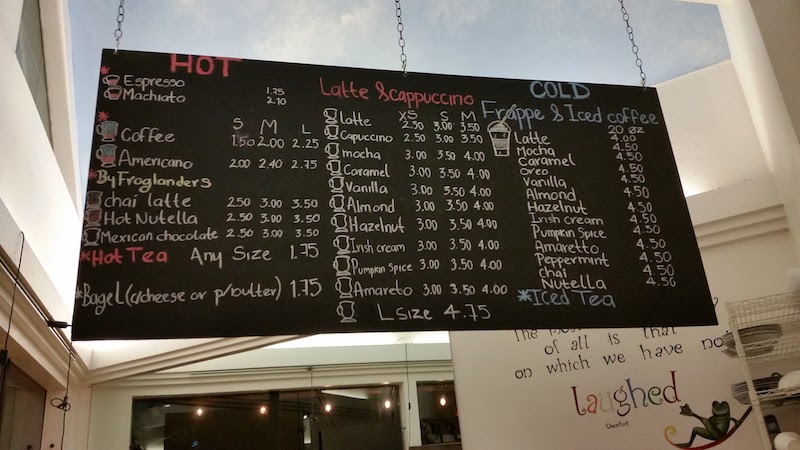 HOT
*Espresso 1.75
Machiato 2.10
* S M L
Coffee 1.50 2.00 2.25
Americano 2.00 2.40 2.75
*By Froglanders
chai latte 2.50 3.00 3.50
Hot Nutella 2.50 3.00 3.50
Mexican chocolate 2.50 3.00 3.50
*Hot Tea Any Size 1.75
*Bagel (c/cheese or p/butter) 1.75
Latte & cappuccino
XS S M
latte 2.50 3.00 3.50
Capuccino 2.50 3.00 3.50
mocha 3.00 3.50 4.00
Caramel 3.00 3.50 4.00
Vanilla 3.00 3.50 4.00
Almond 3.00 3.50 4.00
Hazelnut 3.00 3.50 4.00
Irish cream 3.00 3.50 4.00
Pumpkin Spice 3.00 3.50 4.00
Amareto 3.00 3.50 4.00
L size 4.75
COLD
Frappe & Iced coffee
20 oz
Latte 4.00
Mocha 4.50
Caramel 4.50
Oreo 4.50
Vanilla 4.50
Almond 4.50
Hazelnut 4.50
Irish cream 4.50
Pumpkin Spice 4.50
Amaretto 4.50
Peppermint 4.50
chai 4.50
Nutella 4.50
*Iced Tea
of all is that
on which we have no
laughed